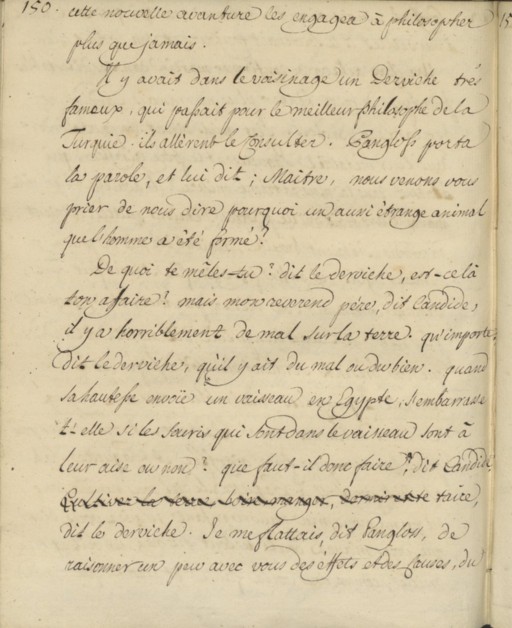 150.
cette nouvelle avanture les engagea à philosopher
plus que jamais.
Il y avait dans le voisinage un Derviche trés
fameux, qui passait pour le meilleur philosophe de la
Turquie. ils allèrent le consulter. Pangloss porta
la parole, et lui dit; Maitre, nous venons vous
prier de nous dire pourquoi un aussi étrange animal
que l'homme a été formé?
De quoi te mêles-tu? dit le derviche, est-ce là
ton affaire? mais mon reverend pére, dit Candide,
il y a horriblement de mal sur la terre. qu'importe,
dit le derviche, qu'il y ait du mal ou du bien. quand
sa hautesse envoïe un vaisseau en Egypte, s'embarrasse
t-elle si les souris qui sont dans le vaisseau sont à
leur aise ou non? que faut-il donc faire?, dit Candide
Cultiver la terre boire manger, dormir et te taire,
dit le derviche. Je me flattais, dit Pangloss, de
raisonner un peu avec vous des éffets et des causes, du